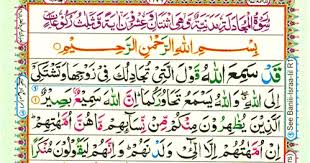 سُوْرَةُ الْمُجَادَلَةِ مَدَنِيَّةٌ وَّهِيَ اثْنَتَانِ وَعِشْرُوْنَ اٰيَةً وَّثَلٰثُ رُكُوْعَاتٍ
بِسْمِ اللّٰهِ الرَّحْمٰنِ الرَّحِيْمِ
قَدْ سَمِعَ اللّٰهُ قَوْلَ الَّتِيْ تُجَادِلُكَ فِيْ زَوْجِهَا وَتَشْتَكِيْٓ
اِلَى اللّٰهِ وَاللّٰهُ يَسْمَعُ تَحَاوُرَكُمَا اِنَّ اللّٰهَ سَمِيْعٌۢ بَصِيْرٌ
اَلَّذِيْنَ يُظٰهِرُوْنَ مِنْكُمْ مِّنْ نِّسَآئِهِمْ مَّا هُنَّ اُمَّهٰتِهِمْ
اِنْ اُمَّهٰتُهُمْ اِلَّا الّٰٓـِٔيْ وَلَدْنَهُمْ وَاِنَّهُمْ لَيَقُوْلُوْنَ مُنْكَرًا
See Banii-Israa-iil R